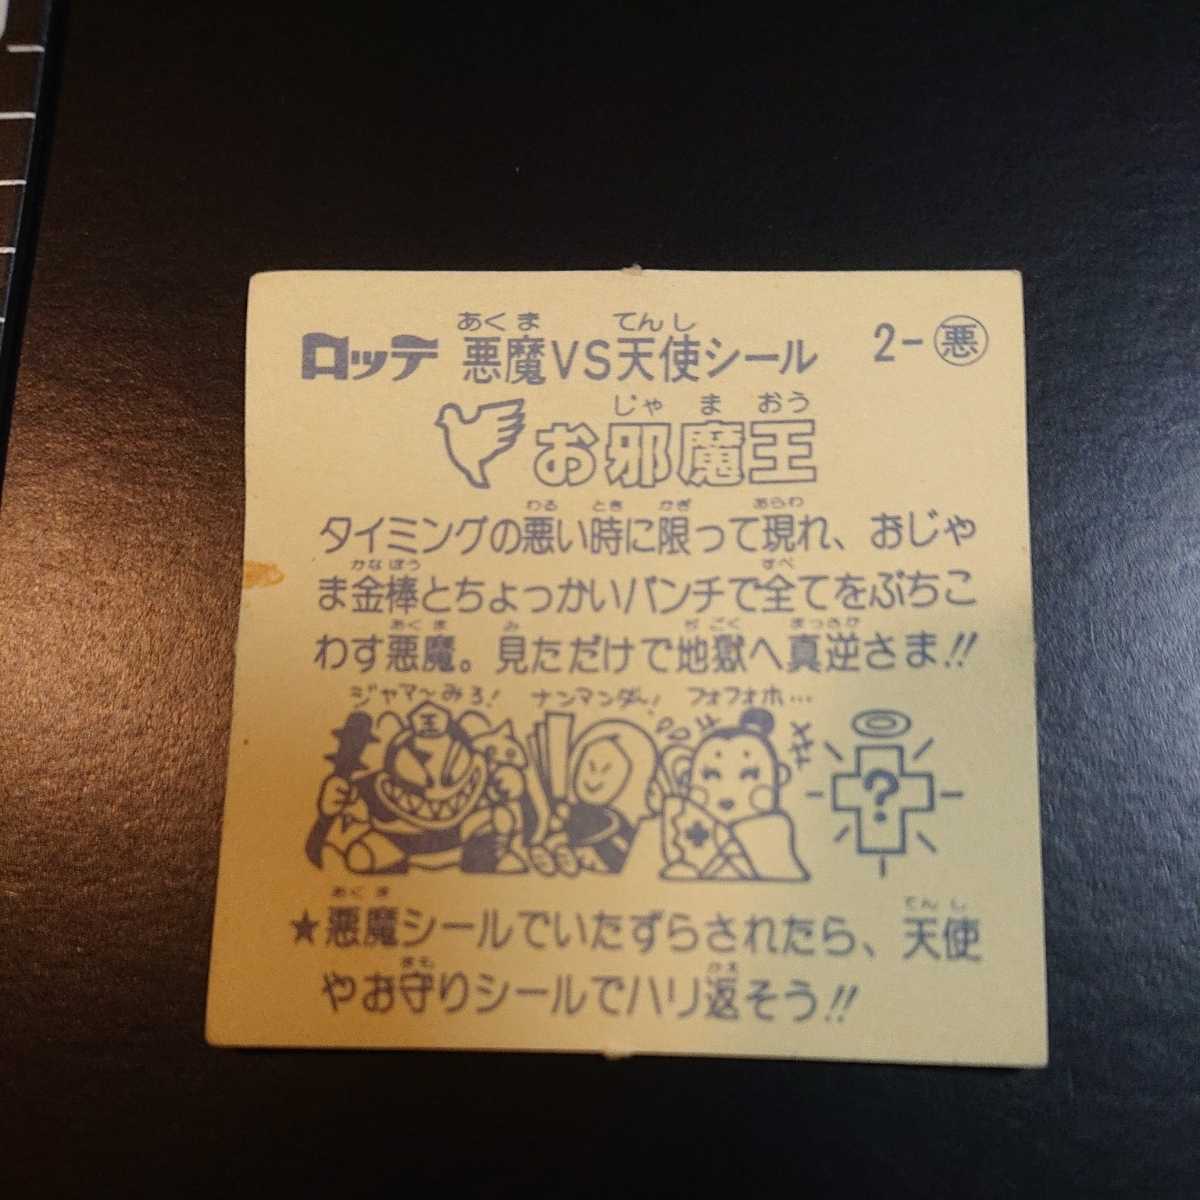 ロッテ 悪魔VS天使シール 2-悪
お邪魔王
タイミングの悪い時に限って現れ、おじゃ
ま金棒とちょっかいパンチで全てをぶちこ
わす悪魔。見ただけで地獄へ真逆さま!!
ジャマ〜みろ! ナンマンダ〜! フォフォホ…
王
?
★悪魔シールでいたずらされたら、天使
やお守りシールでハリ返そう!!